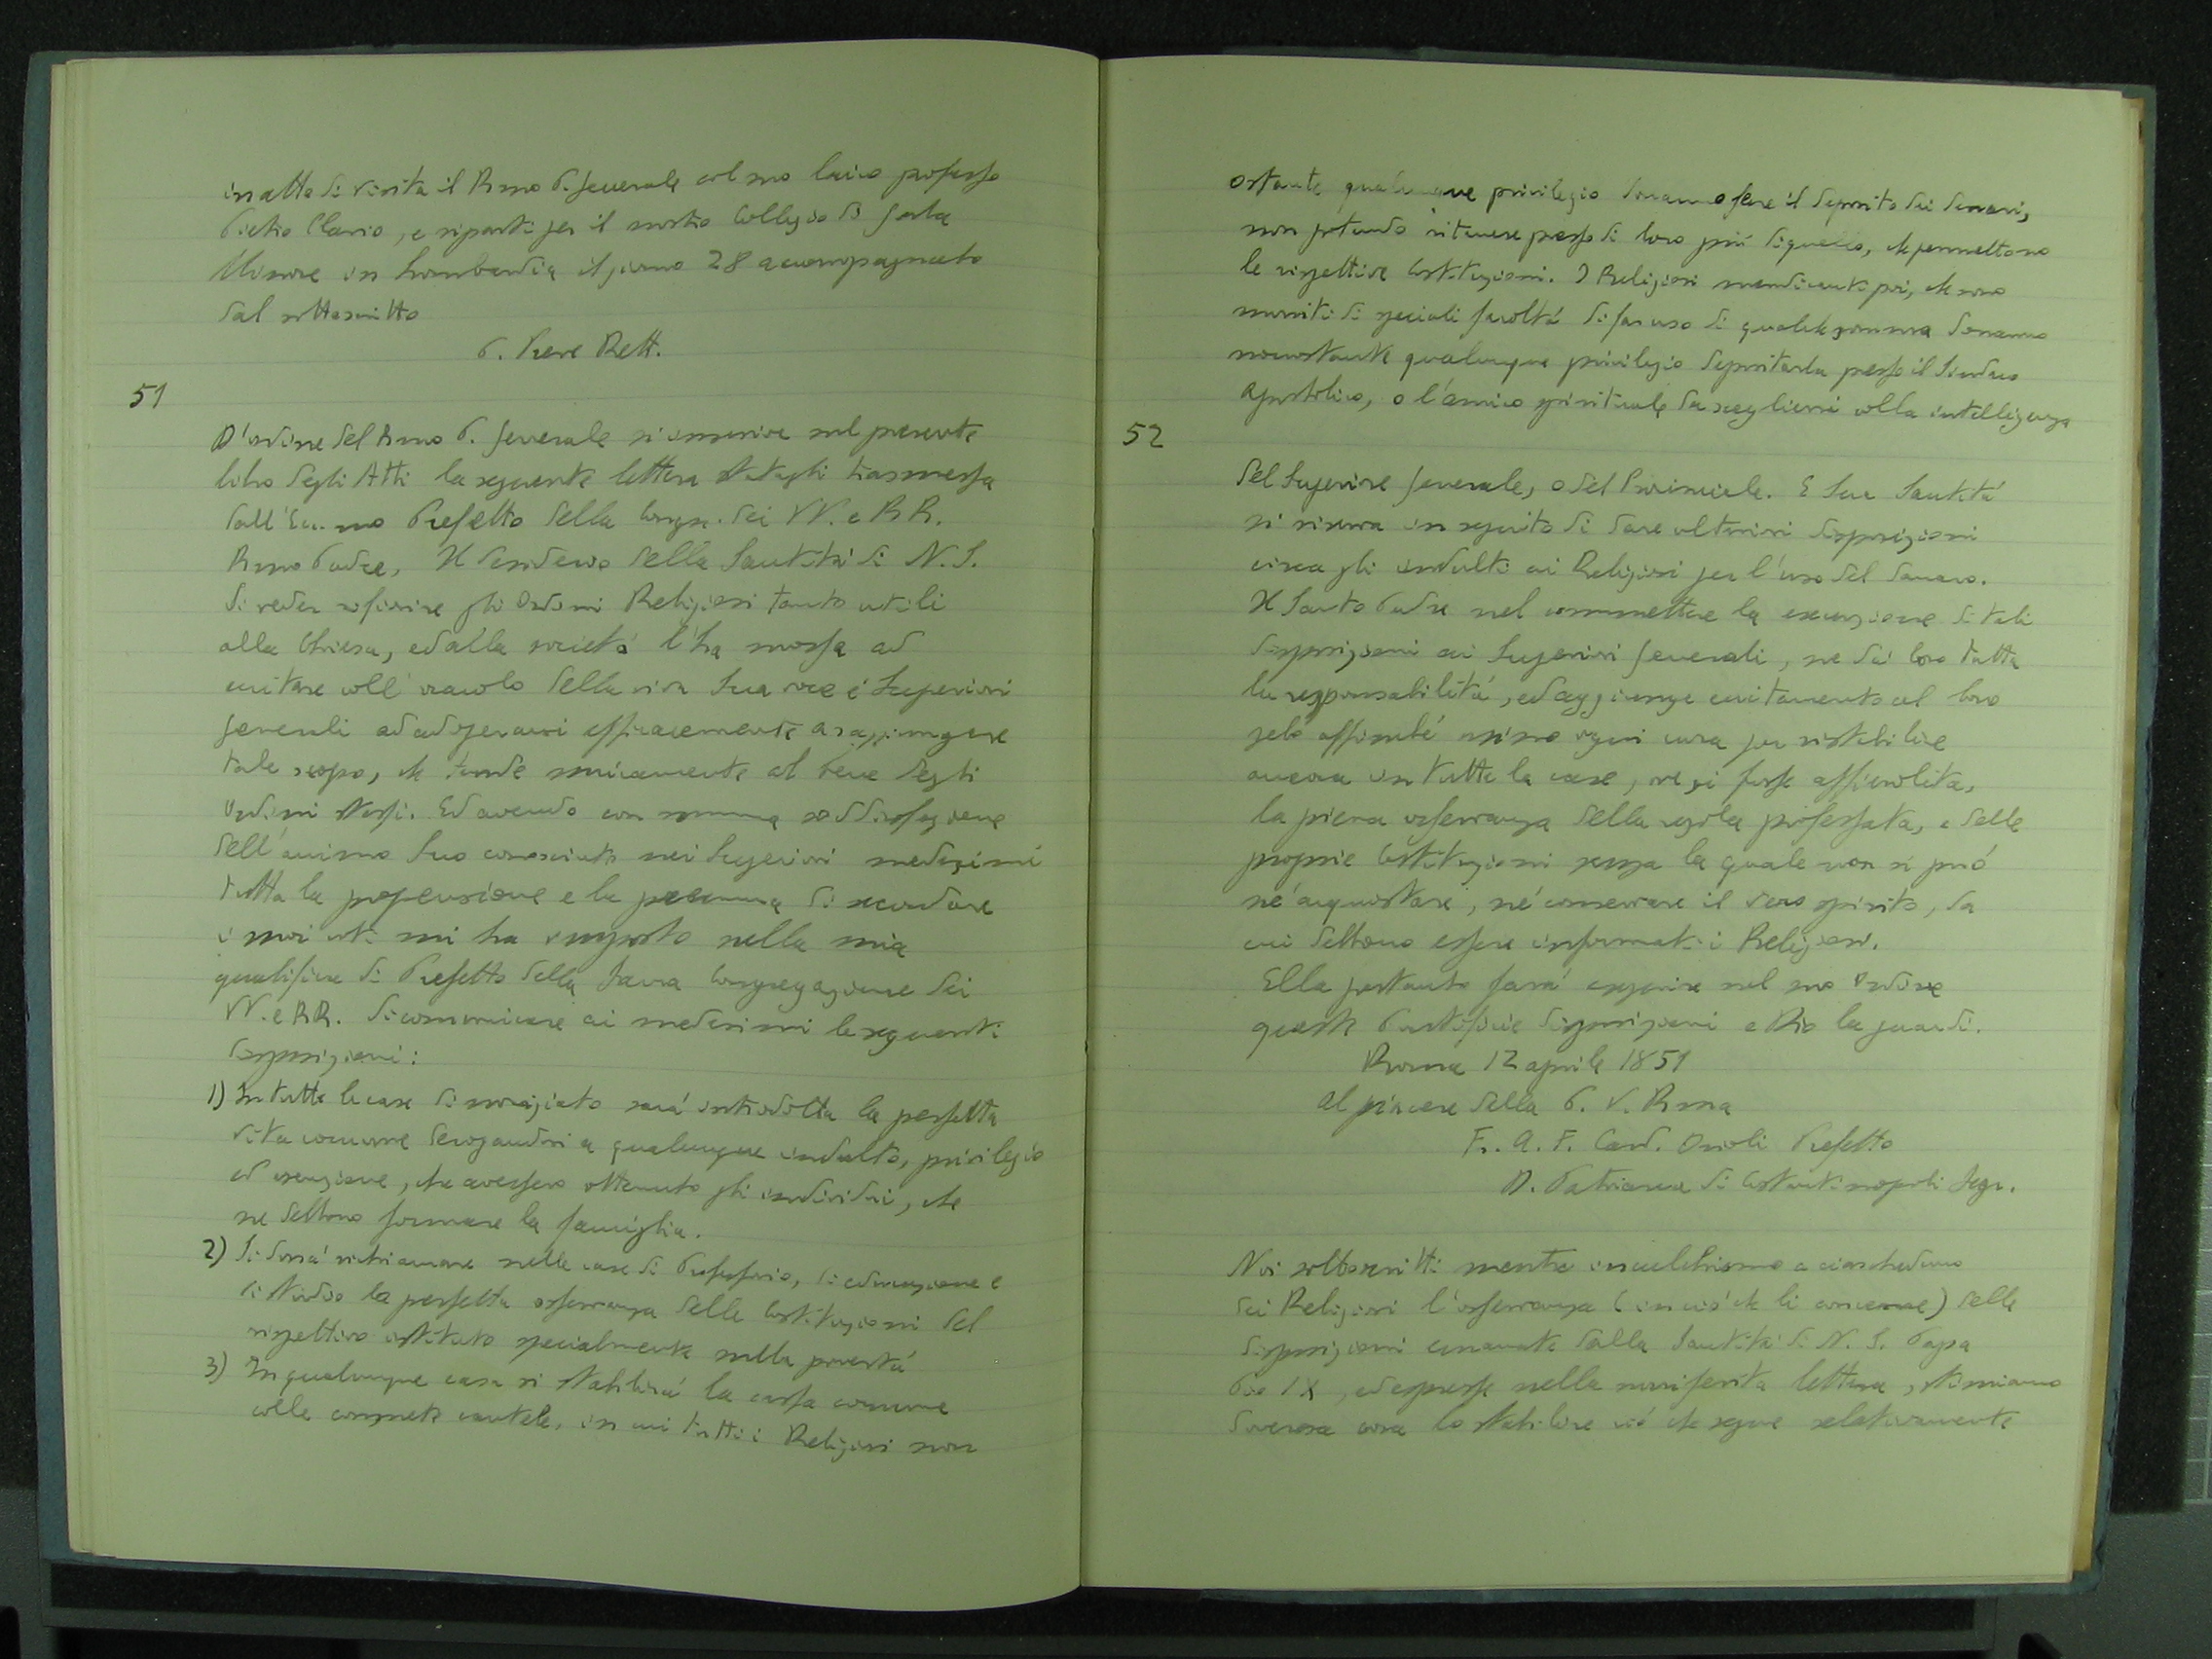 in atto di visita il Rmo P. Generale col suo laico professo
Pietro Clario, e ripartì per il nostro Collegio di Gorla
Minore in Lombardia il giorno 28 accompagnato
dal sottoscritto
P. Preve Rett.
51
D'ordine del Rmo P. Generale si inserisce nel presente
libro degli Atti la seguente lettera statagli trasmessa
dall'Em.mo Prefetto della Congr. dei VV. e RR.
Rmo Padre, Il desiderio della Santità di N. S.
di veder rifiorire gli Ordini Religiosi tanto utili
alla Chiesa, ed alla società l'ha mossa ad
eccitare coll'oracolo della viva Sua voce i Superiori
Generali ad adoperarsi efficacemente a raggiungere
tale scopo, che tende unicamente al bene degli
Ordini stessi. Ed avendo con somma soddisfazione
dell'animo Suo conosciuto nei Superiori medesimi
tutta la propensione e la premura di secondare
i suoi voti mi ha imposto nella mia
qualifica di Prefetto della Sacra Congregazione dei
VV. e RR. di comunicare ai medesimi le seguenti
disposizioni:
1) In tutte le case di noviziato sarà introdotta la perfetta
vita comune derogandosi a qualunque indulto, privilegio
ed esenzione, che avessero ottenuto gli individui, che
ne debbono formare la famiglia.
2) Si dovrà richiamare nelle case di Professorio, di educazione e
di studio la perfetta osservanza delle Costituzioni del
rispettivo istituto specialmente sulla povertà
3) In qualunque casa si stabilirà la cassa comune
colle consuete cautele, in cui tutti i Religiosi non
ostante qualunque privilegio dovranno fare il deposito dei denari,
non potendo ritenere presso di loro più di quello, che permettono
le rispettive Costituzioni. I Religiosi mendicanti poi, che sono
muniti di speciali facoltà di far uso di qualche somma dovranno
nonostante qualunque privilegio depositarla presso il Sindaco
Apostolico, o l'amico spirituale da scegliersi colla intelligenza
52
del Superiore Generale, o del Provinciale. E Sua Santità
si riserva in seguito di dare ulteriori disposizioni
circa gli indulti ai Religiosi per l'uso del danaro.
Il Santo Padre nel commettere la esecuzione di tali
disposizioni ai Superiori Generali, ne dà loro tutta
la responsabilità, ed aggiunge eccitamento al loro
zelo affinché usino ogni cura per ristabilire
ancora in tutte le case, ove si fosse affievolita,
la piena osservanza della regola professata, e delle
proprie Costituzioni senza la quale non si può
né acquistare, né conservare il vero spirito, da
cui debbono essere informati i Religiosi.
Ella pertanto farà eseguire nel suo Ordine
queste Pontificie disposizioni e Dio la guardi.
Roma 12 aprile 1851
Al piacere della P. V. Rma
Fr. A. F. Card. Orioli Prefetto
D. Patriarca di Costantinopoli Segr.
Noi sottoscritti mentre inculchiamo a ciascheduno
dei Religiosi l'osservanza (in ciò che li concerne) delle
disposizioni emanate dalla Santità di N. S. Papa
Pio IX, ed espresse nella surriferita lettera, stimiamo
doverosa cosa lo stabilire ciò che segue relativamente